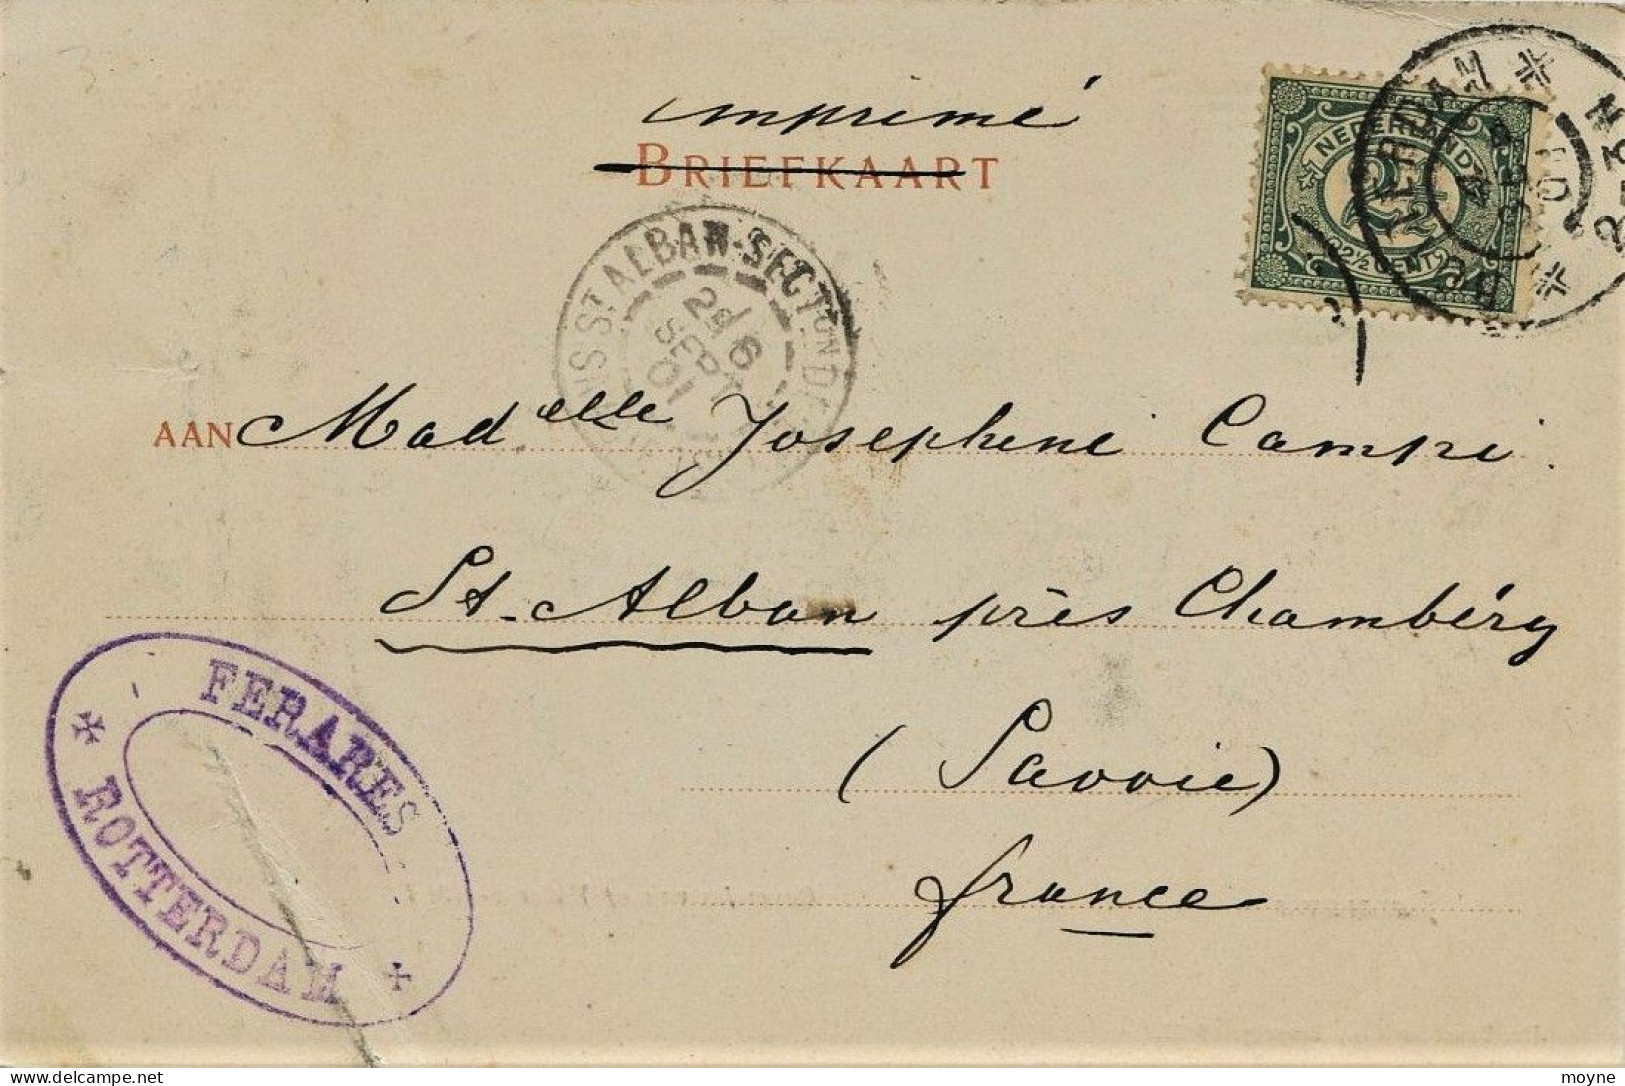 imprimé
BRIEFKAART
NEDERLAND
2½
2½ CENT
ROTTERDAM
2-3 N
ST ALBAN-SECT ON D
26
SEPT
01
AAN Madelle Josephine Campi.
St. Alban près Chambéry
(Savoie)
france
FERARES
ROTTERDAM
moyne